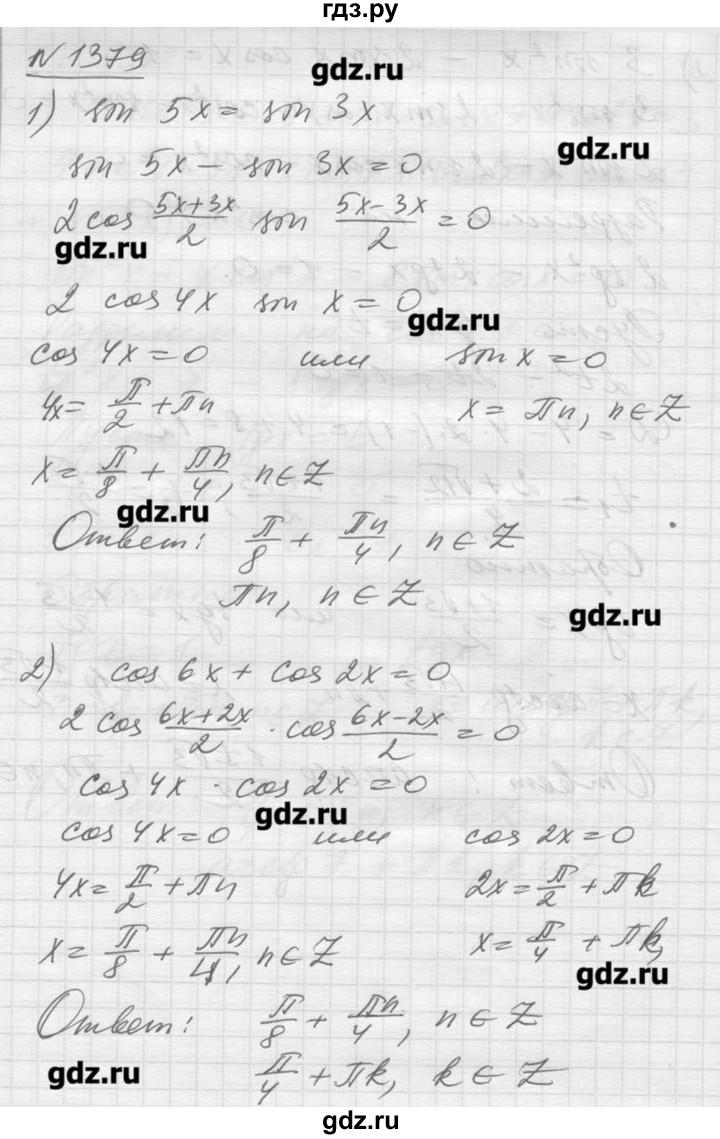 гдз.ру
N 1379
gdz.ru
1) sin 5x = sin 3x
gdz.ru
sin 5x - sin 3x = 0
2 cos (5x+3x)/2 sin (5x-3x)/2 = 0
gdz.ru
2 cos 4x sin x = 0
gdz.ru
cos 4x = 0 или sin x = 0
4x = π/2 + πn x = πn, n ∈ Z
x = π/8 + πn/4, n ∈ Z
gdz.ru
Ответ: π/8 + πn/4, n ∈ Z
πn, n ∈ Z
gdz.ru
2) cos 6x + cos 2x = 0
2 cos (6x+2x)/2 · cos (6x-2x)/2 = 0
cos 4x · cos 2x = 0
gdz.ru
cos 4x = 0 или cos 2x = 0
4x = π/2 + πn 2x = π/2 + πk
x = π/8 + πn/4, n ∈ Z x = π/4 + πk,
gdz.ru
Ответ: π/8 + πn/4, n ∈ Z
π/4 + πk, k ∈ Z
gdz.ru
gdz.ru